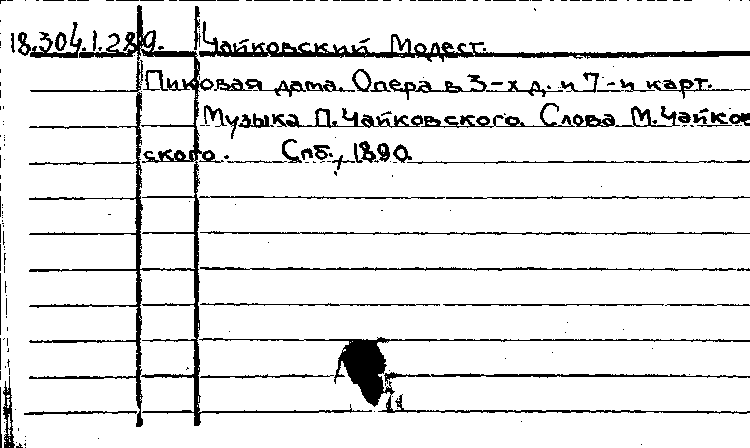 18.304.1.289. Чайковский Модест.
Пиковая дама. Опера в 3-х д. и 7-и карт.
Музыка П. Чайковского. Слова М. Чайков
ского. Спб., 1890.